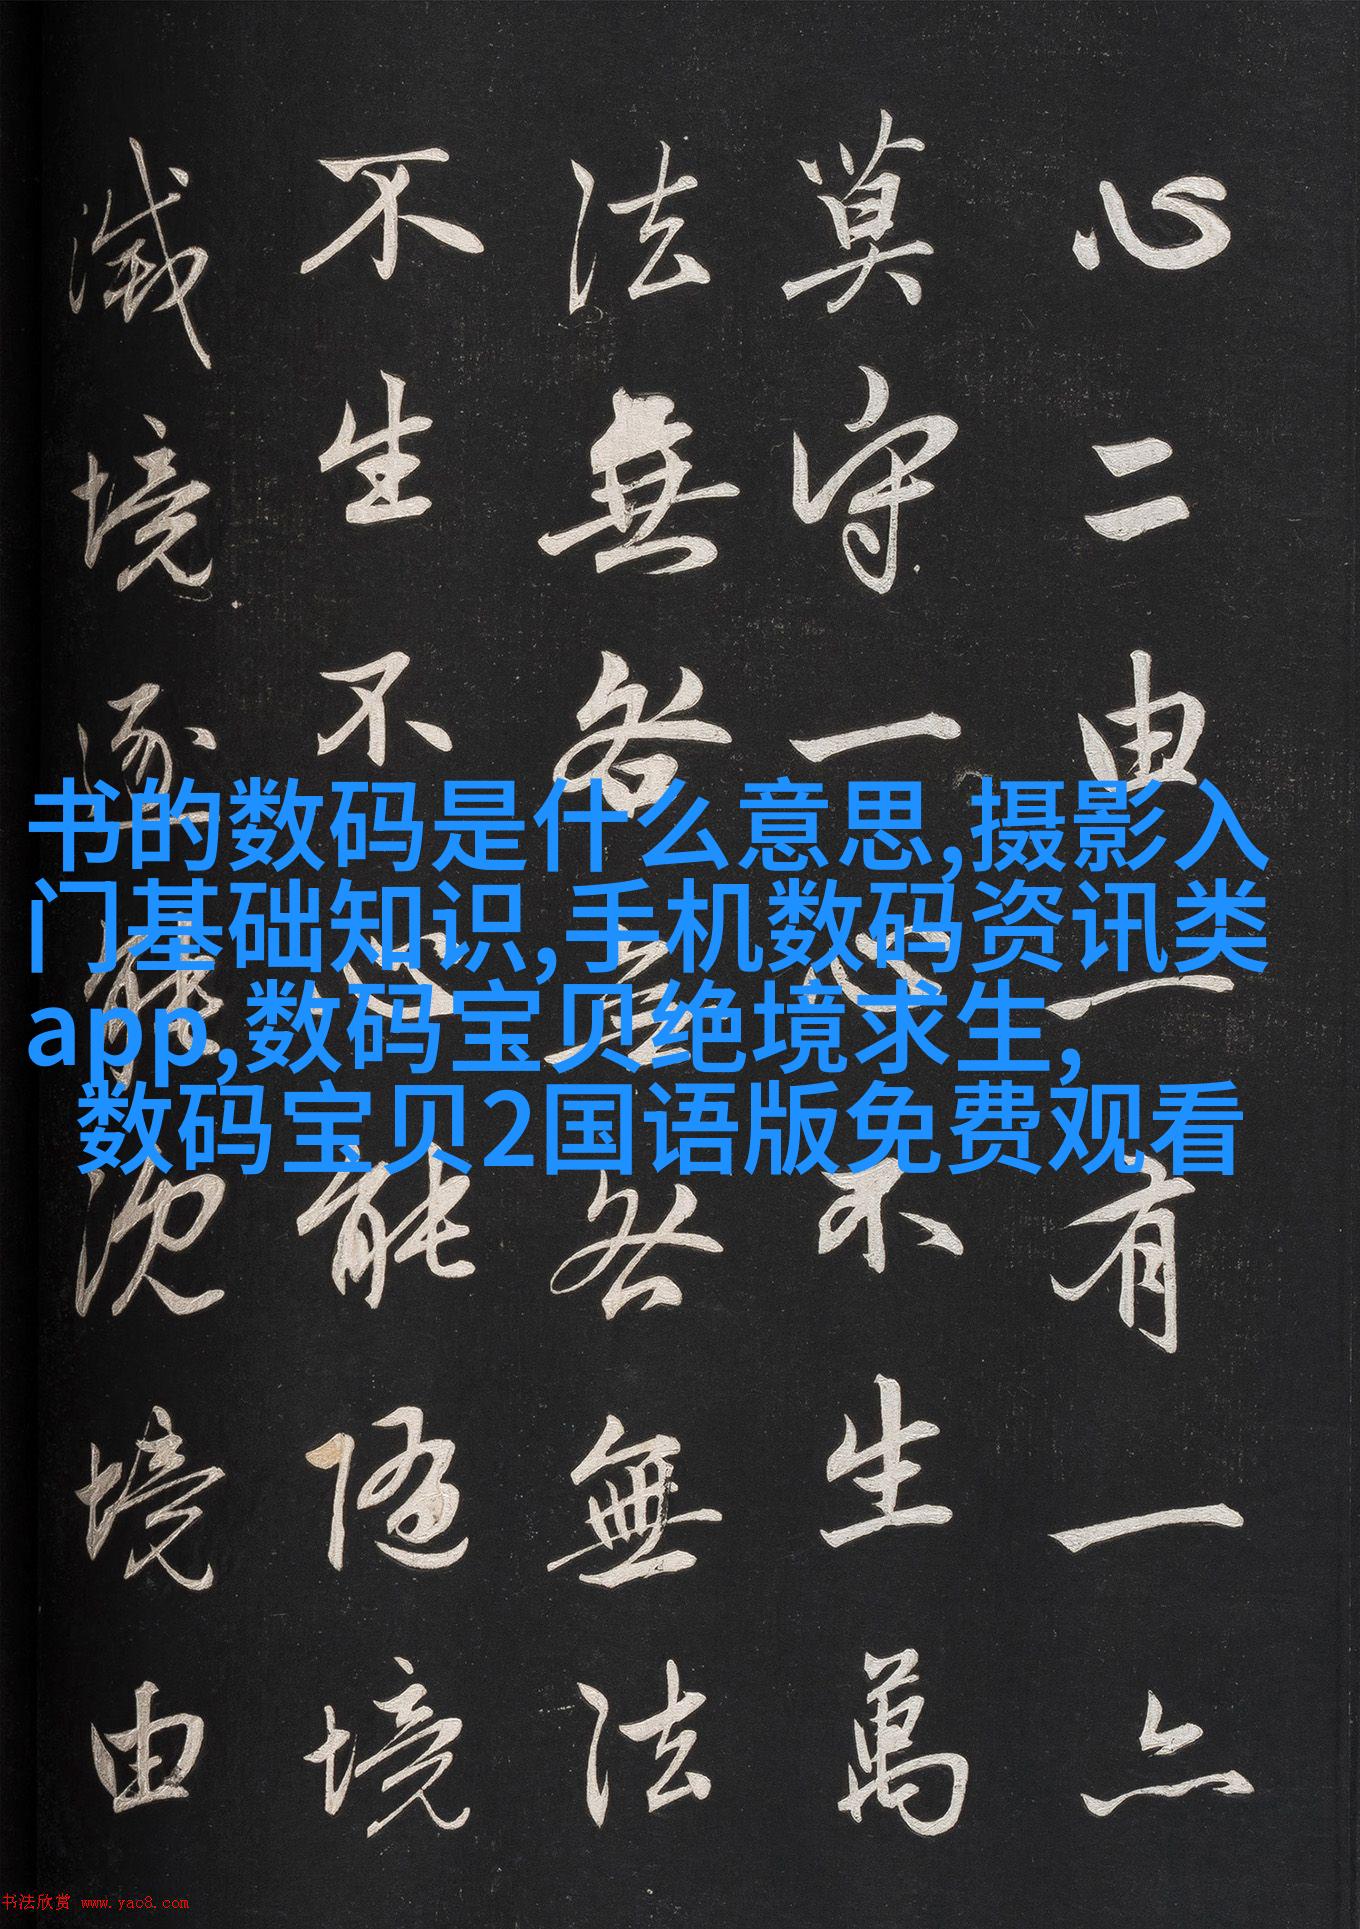 心二由一有一亦
莫守一心不生萬
法無咎無咎無法
不生不心能隨境
滅境逐能沉境由
书的数码是什么意思,摄影入
门基础知识,手机数码资讯类
app,数码宝贝绝境求生,
数码宝贝2国语版免费观看
书法欣赏 www.yac8.com